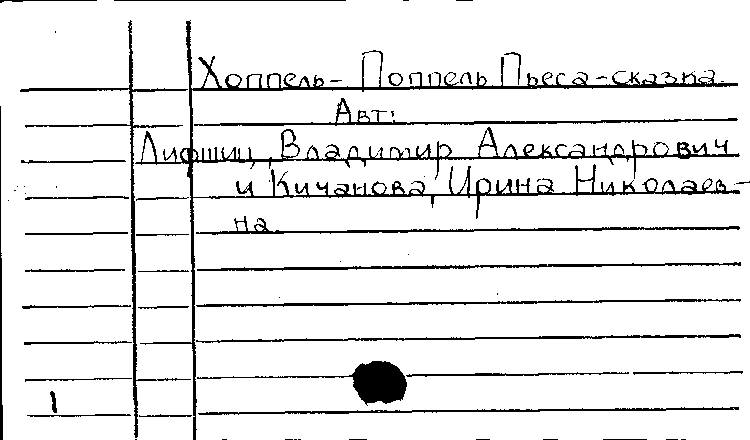 Хоппель-Поппель Пьеса-сказка.
Авт:
Лифшиц, Владимир Александрович
и Кичанова, Ирина Николаев-
на.
1